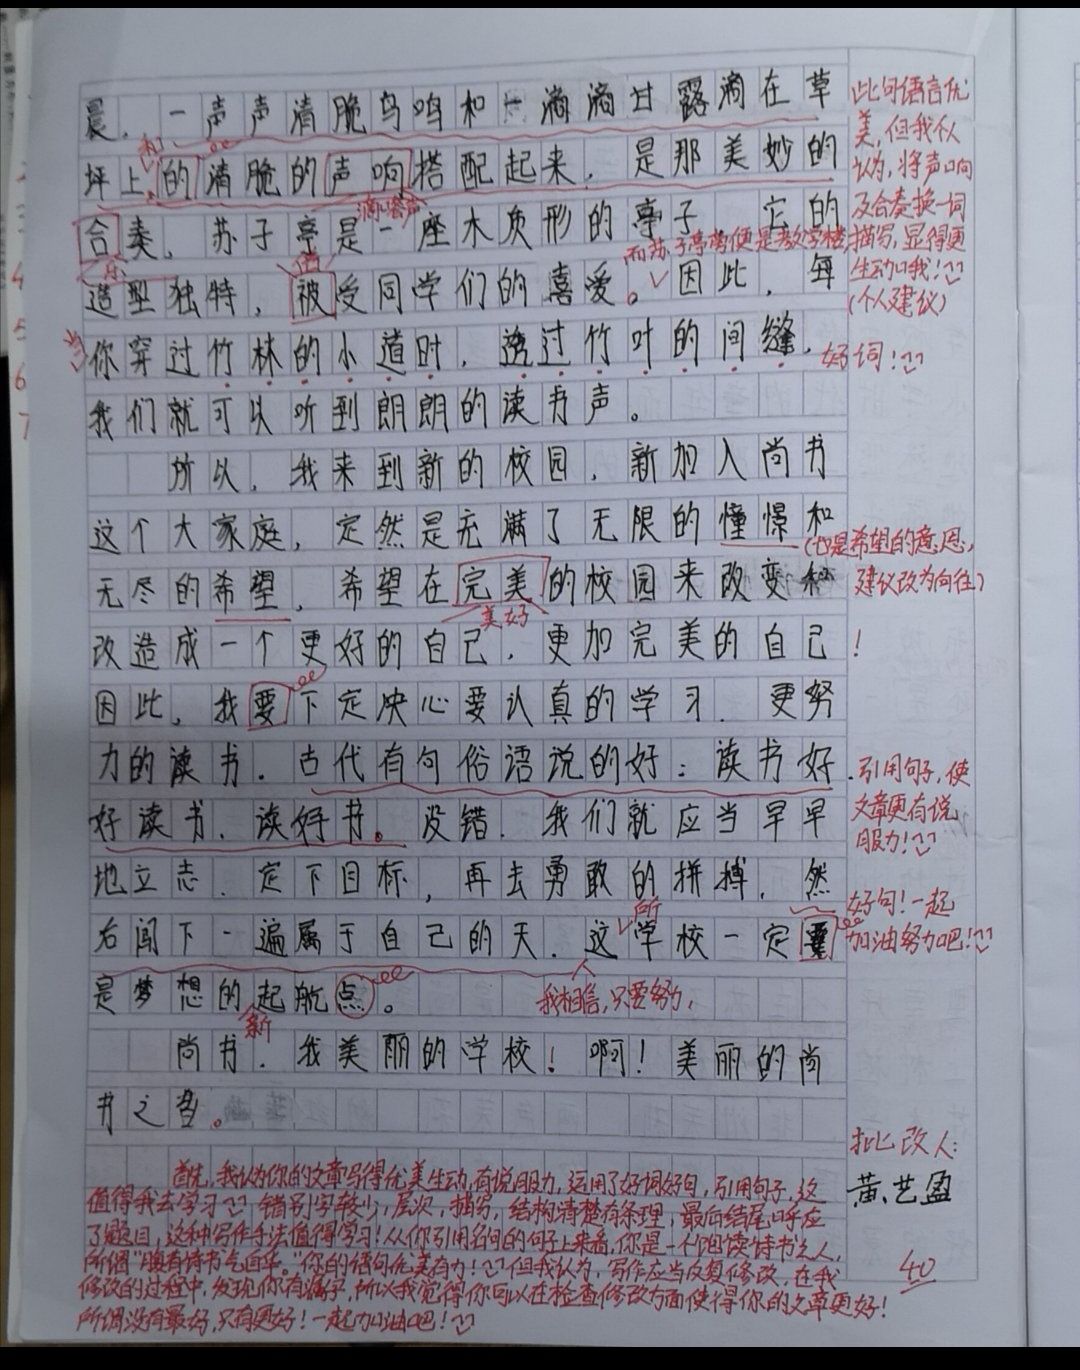 晨，一声声清脆鸟鸣和一滴滴甘露滴在草
坪上的清脆的声响搭配起来，是那美妙的
合奏，苏子亭是一座木质形的亭子，它的
造型独特，被受同学们的喜爱。因此，每
你穿过竹林的小道时，透过竹叶的间缝，
我们就可以听到朗朗的读书声。
所以，我来到新的校园，新加入尚书
这个大家庭，定然是充满了无限的憧憬和
无尽的希望，希望在完美的校园来改变和
改造成一个更好的自己，更加完美的自己！
因此，我要下定决心要认真的学习，更努
力的读书。古代有句俗语说的好：读书好，
好读书，读好书。没错，我们就应当早早
地立志，定下目标，再去勇敢的拼搏，然
后闯下一遍属于自己的天，这学校一定要
是梦想的起航点。
尚书，我美丽的学校！啊！美丽的尚
书之卷。
和
滴嗒声
乐
倍
而苏子亭旁便是教学楼，
当
美好
所
我相信，只要努力，
新
此句语言优
美，但我认
为，将声响
及合奏换一词
描写，显得更
生动哦！
(个人建议)
好词！
(也是希望的意思，
建议改为向往)
引用句子，使
文章更有说
服力！
好句！一起
加油努力吧！
批改人：
黄艺盈
40
首先，我认为你的文章写得优美生动，有说服力，运用了好词好句，引用句子，这
值得我去学习 错别字较少，层次，描写，结构清楚有条理，最后结尾呼应
了题目，这种写作手法值得学习！从你引用名句的句子上来看，你是一个饱读诗书之人，
所谓“腹有诗书气自华。”你的语句优美有力！但我认为，写作应当反复修改，在我
修改的过程中，发现你有漏字，所以我觉得你可以在检查修改方面使得你的文章更好！
所谓没有最好，只有更好！一起加油吧！